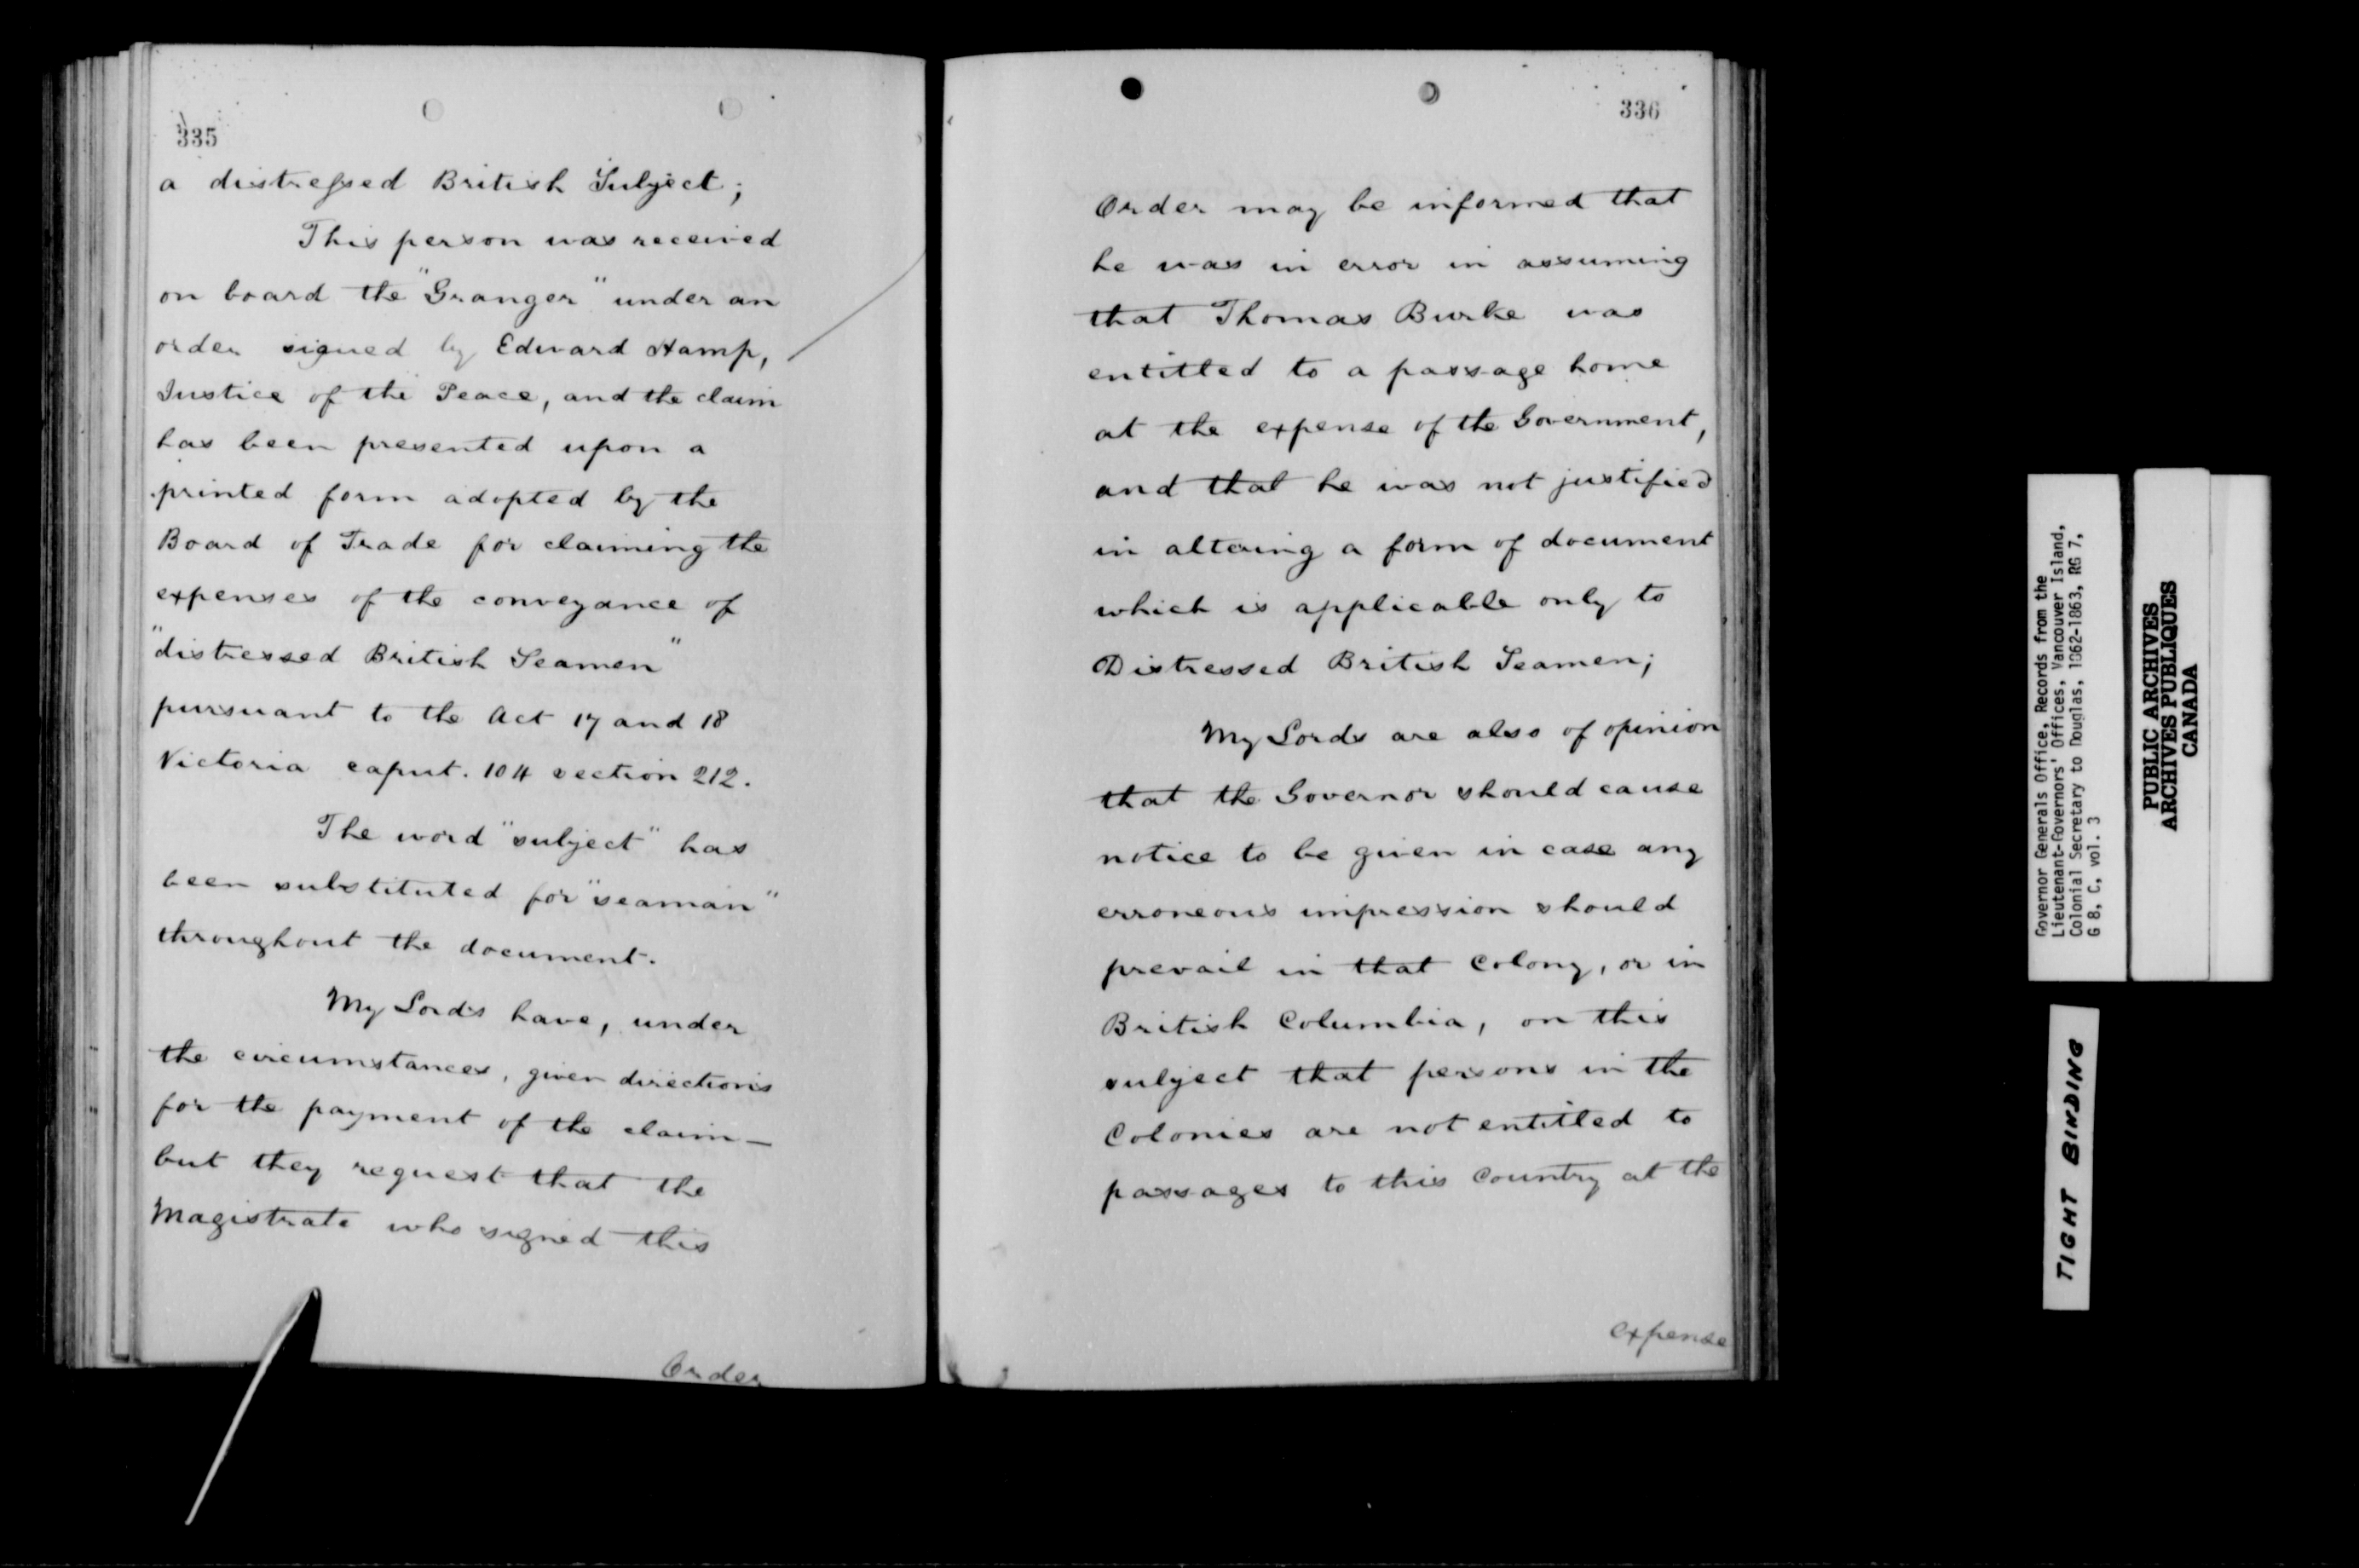 335
a distressed British Subject;
This person was received
on board the "Granger" under an
order signed by Edward Hamp,
Justice of the Peace, and the claim
has been presented upon a
printed form adopted by the
Board of Trade for claiming the
expenses of the conveyance of
"distressed British Seamen"
pursuant to the Act 17 and 18
Victoria caput. 104 section 212.
The word "subject" has
been substituted for "seaman"
throughout the document.
My Lords have, under
the circumstances, given directions
for the payment of the claim—
but they request that the
Magistrate who signed this
Order
336
Order may be informed that
he was in error in assuming
that Thomas Burke was
entitled to a passage home
at the expense of the Government,
and that he was not justified
in altering a form of document
which is applicable only to
Distressed British Seamen;
My Lords are also of opinion
that the Governor should cause
notice to be given in case any
erroneous impression should
prevail in that Colony, or in
British Columbia, on this
subject that persons in the
Colonies are not entitled to
passages to this Country at the
expense
Governor Generals Office, Records from the
Lieutenant-Governors' Offices, Vancouver Island,
Colonial Secretary to Douglas, 1862-1863, RG 7,
G 8, C, vol. 3
PUBLIC ARCHIVES
ARCHIVES PUBLIQUES
CANADA
TIGHT BINDING